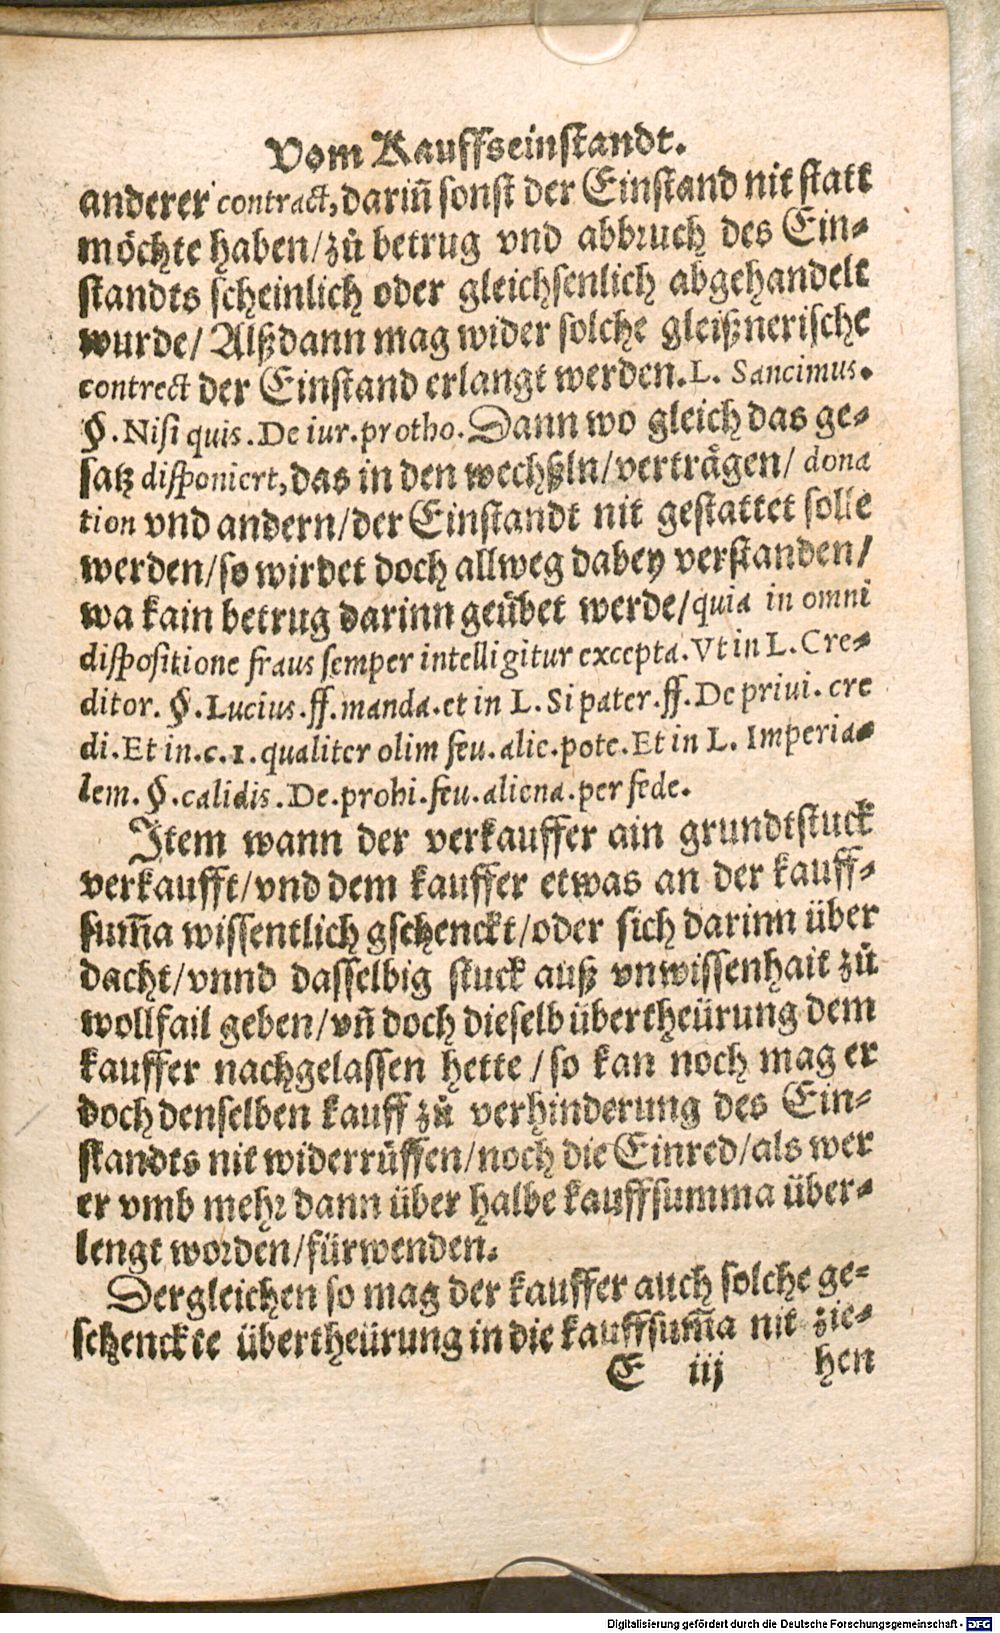 Vom Kauffseinstandt.
anderer contract, dariñ sonst der Einstand nit statt
möchte haben/zů betrug vnd abbruch des Ein-
standts scheinlich oder gleichsenlich abgehandelt
wurde/ Alßdann mag wider solche gleißnerische
contrect der Einstand erlangt werden. L. Sancimus.
§. Nisi quis. De iur. protho. Dann wo gleich das ge-
satz disponiert, das in den wechßln/verträgen/ dona
tion vnd andern/der Einstandt nit gestattet solle
werden/so wirdet doch allweg dabey verstanden/
wa kain betrug darinn geübet werde/quia in omni
dispositione fraus semper intelligitur excepta. Vt in L. Cre-
ditor. §. Lucius. ff. manda. et in L. Si pater. ff. De priui. cre
di. Et in. c. 1. qualiter olim feu. alie. pote. Et in L. Imperia-
lem. §. calidis. De. prohi. feu. aliena. per fede.
Item wann der verkauffer ain grundtstuck
verkaufft/vnd dem kauffer etwas an der kauff-
sum̃a wissentlich gschenckt/oder sich darinn über
dacht/vnnd dasselbig stuck auß vnwissenhait zů
wollfail geben/vñ doch dieselb übertheürung dem
kauffer nachgelassen hette /so kan noch mag er
doch denselben kauff zů verhinderung des Ein-
standts nit widerrůffen/noch die Einred/als wer
er vmb mehr dann über halbe kauffsumma über-
lengt worden/fürwenden.
Dergleichen so mag der kauffer auch solche ge-
schenckte übertheürung in die kauffsum̃a nit zie-
E iij hen
Digitalisierung gefördert durch die Deutsche Forschungsgemeinschaft - DFG